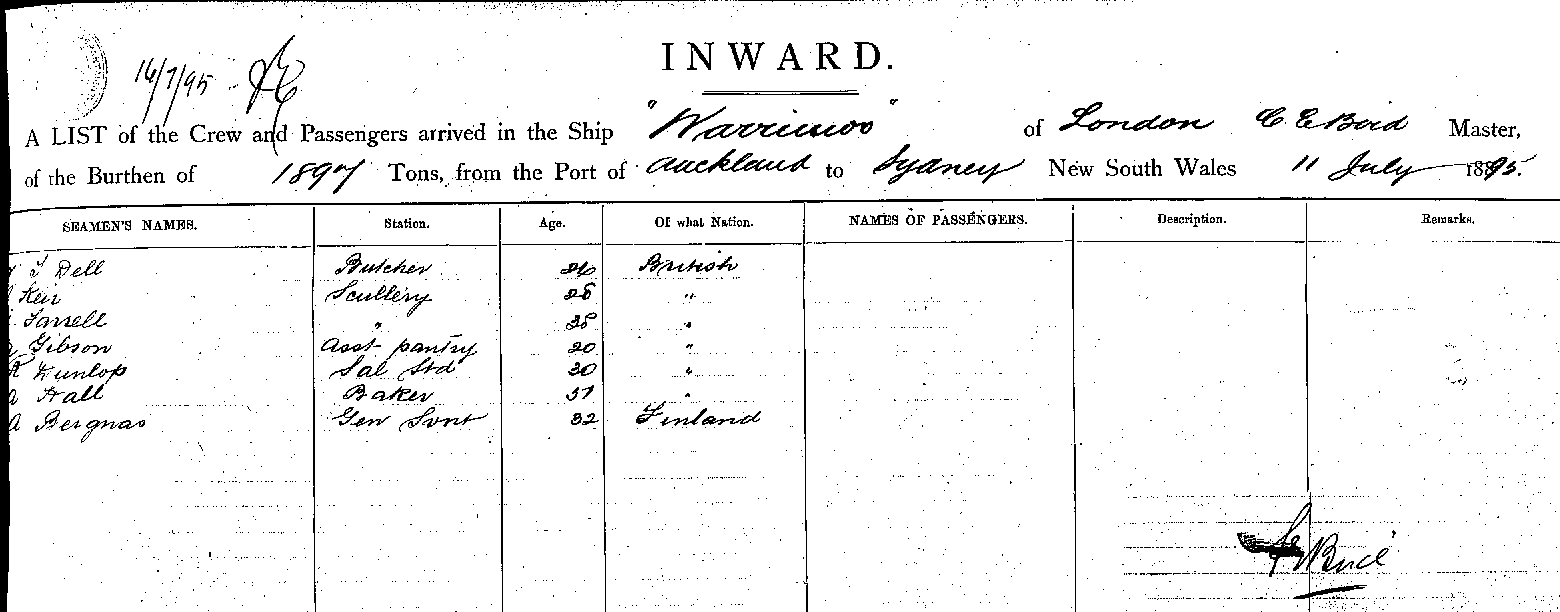 INWARD.
16/7/95
A LIST of the Crew and Passengers arrived in the Ship "Warrimoo" of London C. E Bird Master,
of the Burthen of 1897 Tons, from the Port of Auckland to Sydney New South Wales 11 July 1895.
SEAMEN'S NAMES. Station. Age. Of what Nation. NAMES OF PASSENGERS. Description. Remarks.
Dell Butcher 26 British
Keir Scullery 25 "
Farrell " 25 "
Gibson Asst pantry 20 "
K Dunlop Sal Std 30 "
A Hall Baker 37 "
A Bergnas Gen Svnt 32 Finland